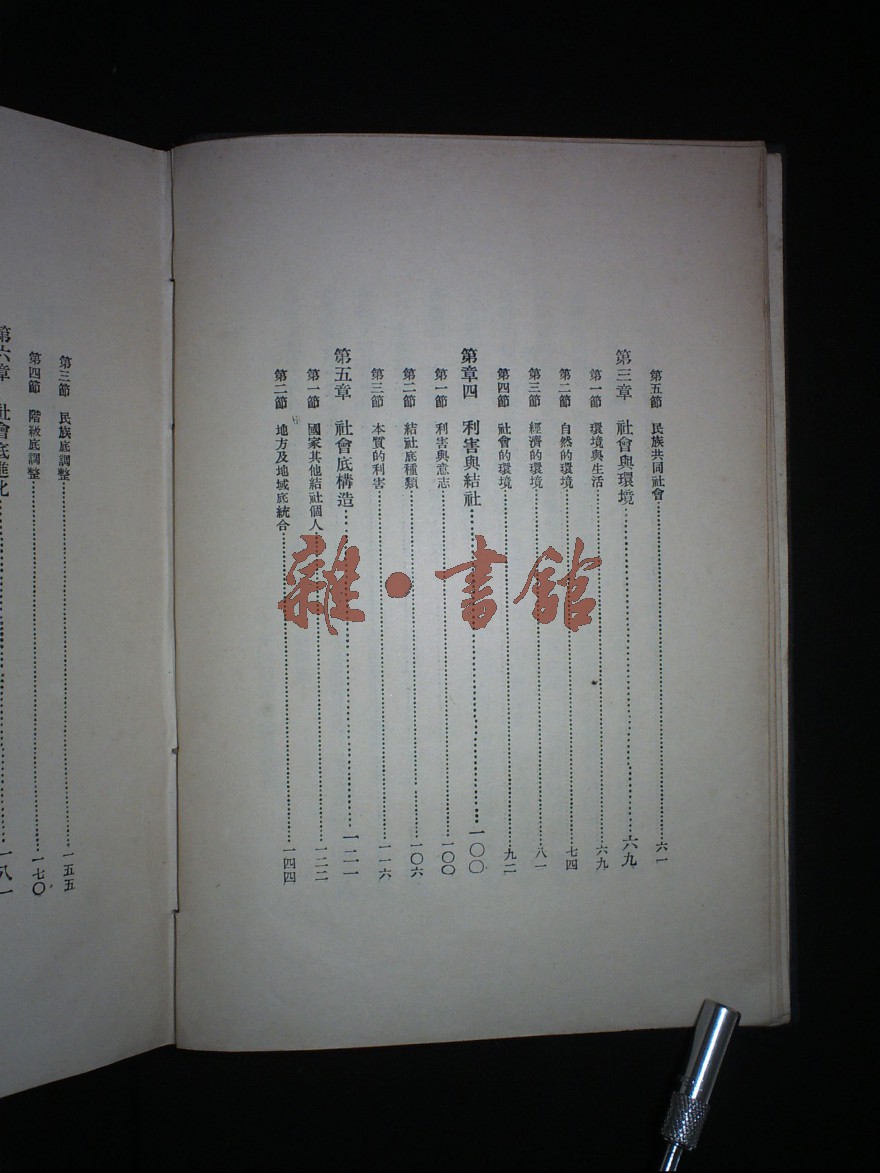 第五節 民族共同社會……六一
第三章 社會與環境……六九
第一節 環境與生活……六九
第二節 自然的環境……七四
第三節 經濟的環境……八一
第四節 社會的環境……九二
第章四 利害與結社……一〇〇
第一節 利害與意志……一〇〇
第二節 結社底種類……一〇六
第三節 本質的利害……一一六
第五章 社會底構造……一二一
第一節 國家其他結社個人……一二二
第二節 地方及地域底統合……一四四
第三節 民族底調整……一五五
第四節 階級底調整……一七〇
第六章 社會底進化……一八一
雜·書館